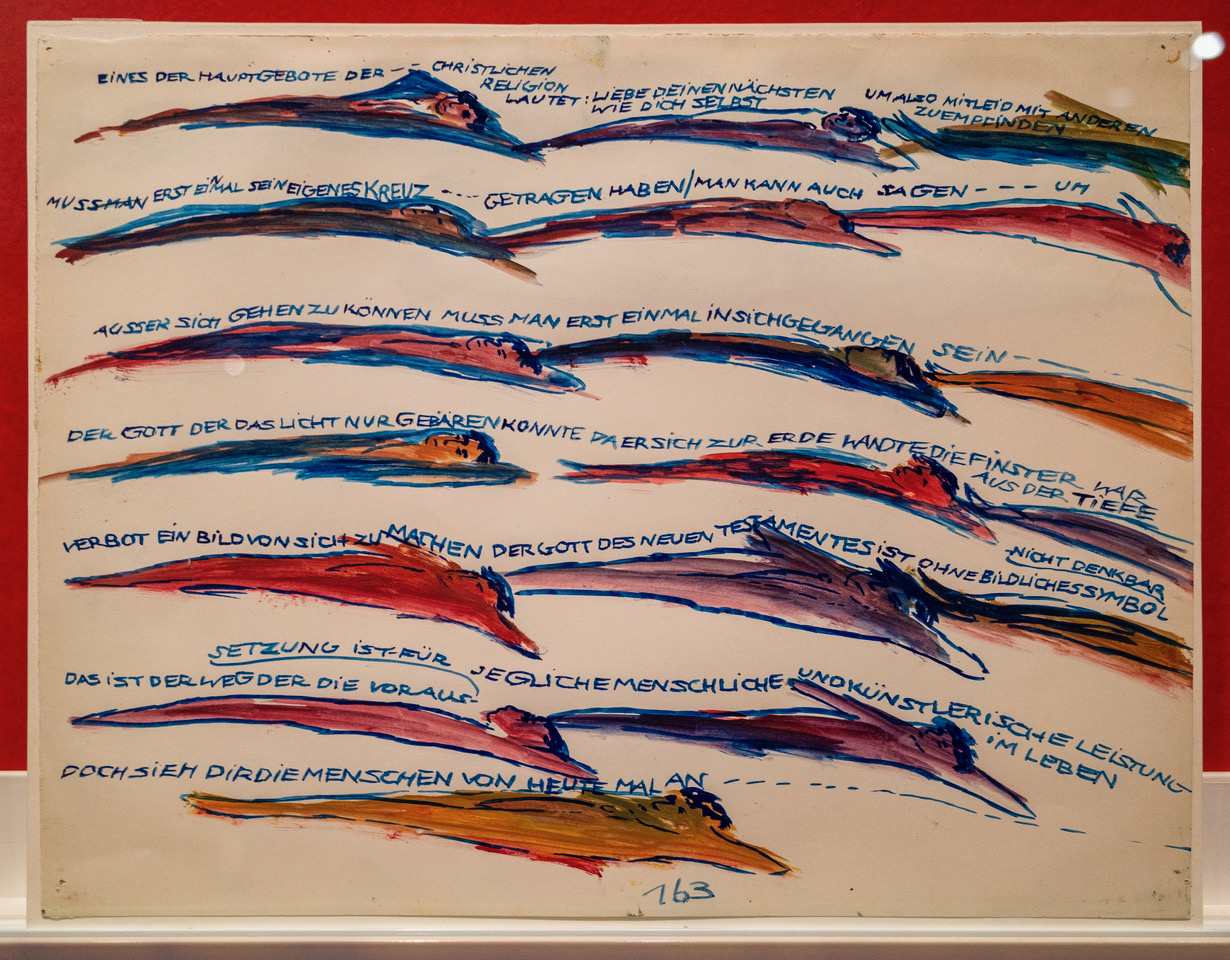 EINES DER HAUPTGEBOTE DER -- CHRISTLICHEN RELIGION LAUTET: LIEBE DEINEN NÄCHSTEN WIE DICH SELBST UM ALSO MITLEID MIT ANDEREN ZUEMPFINDEN
MUSS MAN ERST EINMAL SEIN EIGENES KREUZ --- GETRAGEN HABEN/MAN KANN AUCH SAGEN --- UM
AUSSER SICH GEHEN ZU KÖNNEN MUSS MAN ERST EINMAL IN SICH GEGANGEN SEIN --
DER GOTT DER DAS LICHT NUR GEBÄREN KONNTE DA ER SICH ZUR ERDE WANDTE DIE FINSTER WAR AUS DER TIEFE
VERBOT EIN BILD VON SICH ZU MACHEN DER GOTT DES NEUEN TESTAMENTES IST OHNE BILDLICHES SYMBOL NICHT DENKBAR
DAS IST DER WEG DER DIE VORAUS-
SETZUNG IST FÜR JEGLICHE MENSCHLICHE UND KÜNSTLERISCHE LEISTUNG IM LEBEN
DOCH SIEH DIR DIE MENSCHEN VON HEUTE MAL AN --------
163